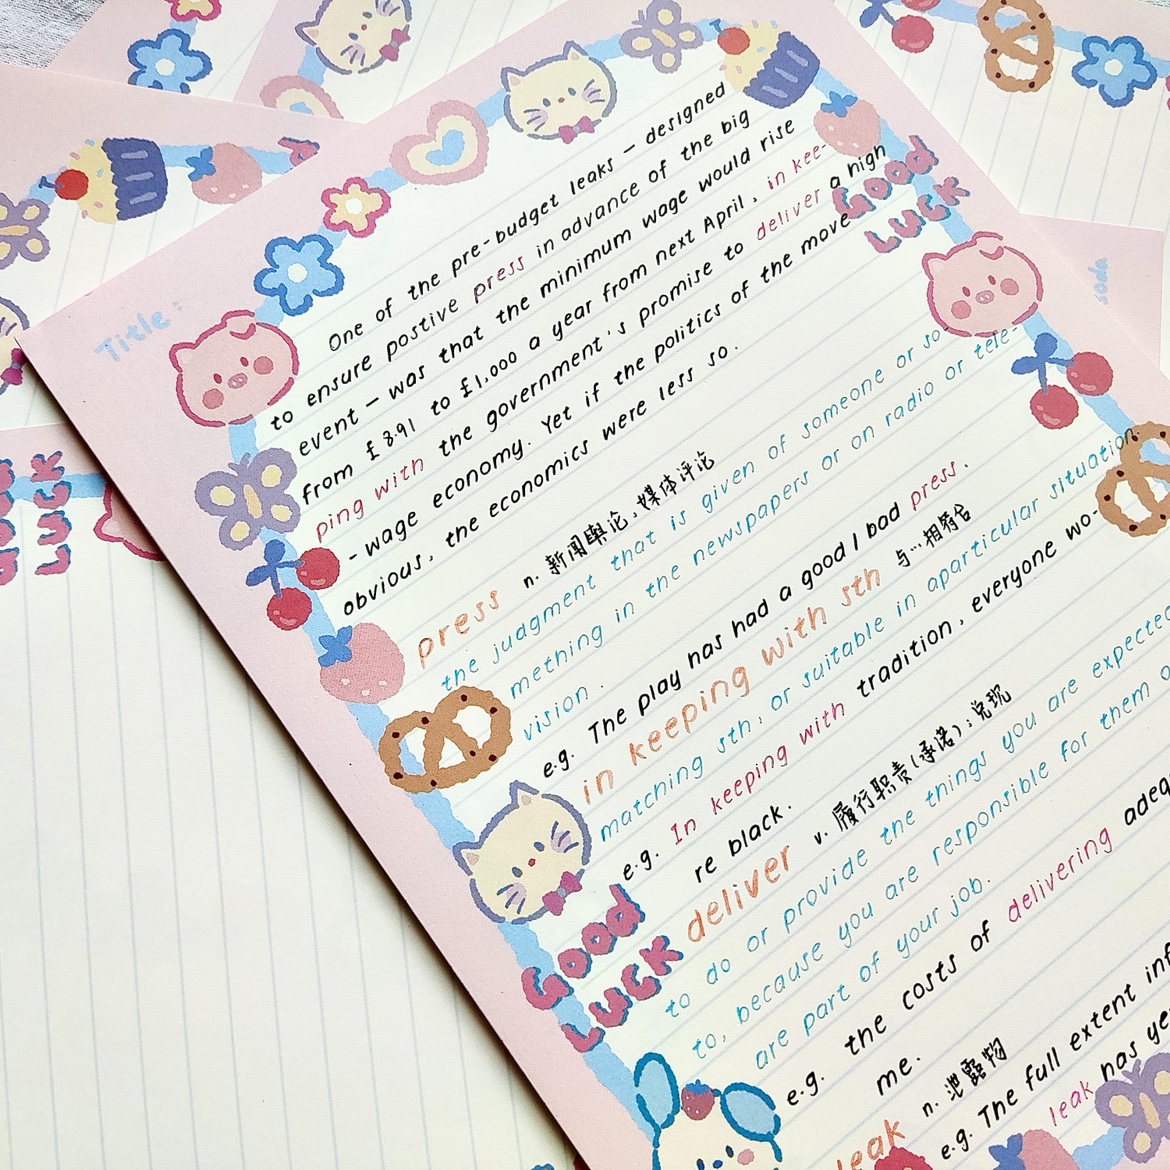 Title:
One of the pre-budget leaks – designed
to ensure postive press in advance of the big
event – was that the minimum wage would rise
from £8.91 to £1,000 a year from next April, in kee-
ping with the government's promise to deliver a high
-wage economy. Yet if the politics of the move
obvious, the economics were less so.
GOOD
LUCK
press n. 新闻舆论,媒体评论
the judgment that is given of someone or so-
mething in the newspapers or on radio or tele-
vision.
e.g. The play has had a good / bad press.
in keeping with sth 与…相符合
matching sth, or suitable in aparticular situation.
e.g. In keeping with tradition, everyone wo-
re black.
deliver v. 履行职责(承诺);兑现
to do or provide the things you are expected
to, because you are responsible for them o
are part of your job.
e.g. the costs of delivering adeq
me.
leak n. 泄露物
e.g. The full extent inf
leak has ye
GOOD
LUCK
LUCK
soda